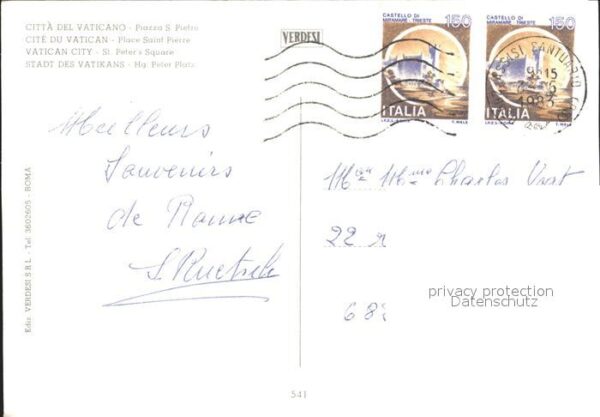 CITTÀ DEL VATICANO - Piazza S. Pietro
CITÉ DU VATICAN - Place Saint Pierre
VATICAN CITY - St. Peter's Square
STADT DES VATIKANS - Hg. Peter Platz
VERDESI
CASTELLO DI MIRAMARE · TRIESTE 150
ITALIA
CASTELLO DI MIRAMARE · TRIESTE 150
ITALIA
ASSISI SANTUARIO
9-15
1983
Meilleurs
Souvenirs
de Rome
Mr et Mme Charles
22 r
68
privacy protection
Datenschutz
Ediz. VERDESI S.R.L. - Tel. 3602605 - ROMA
541